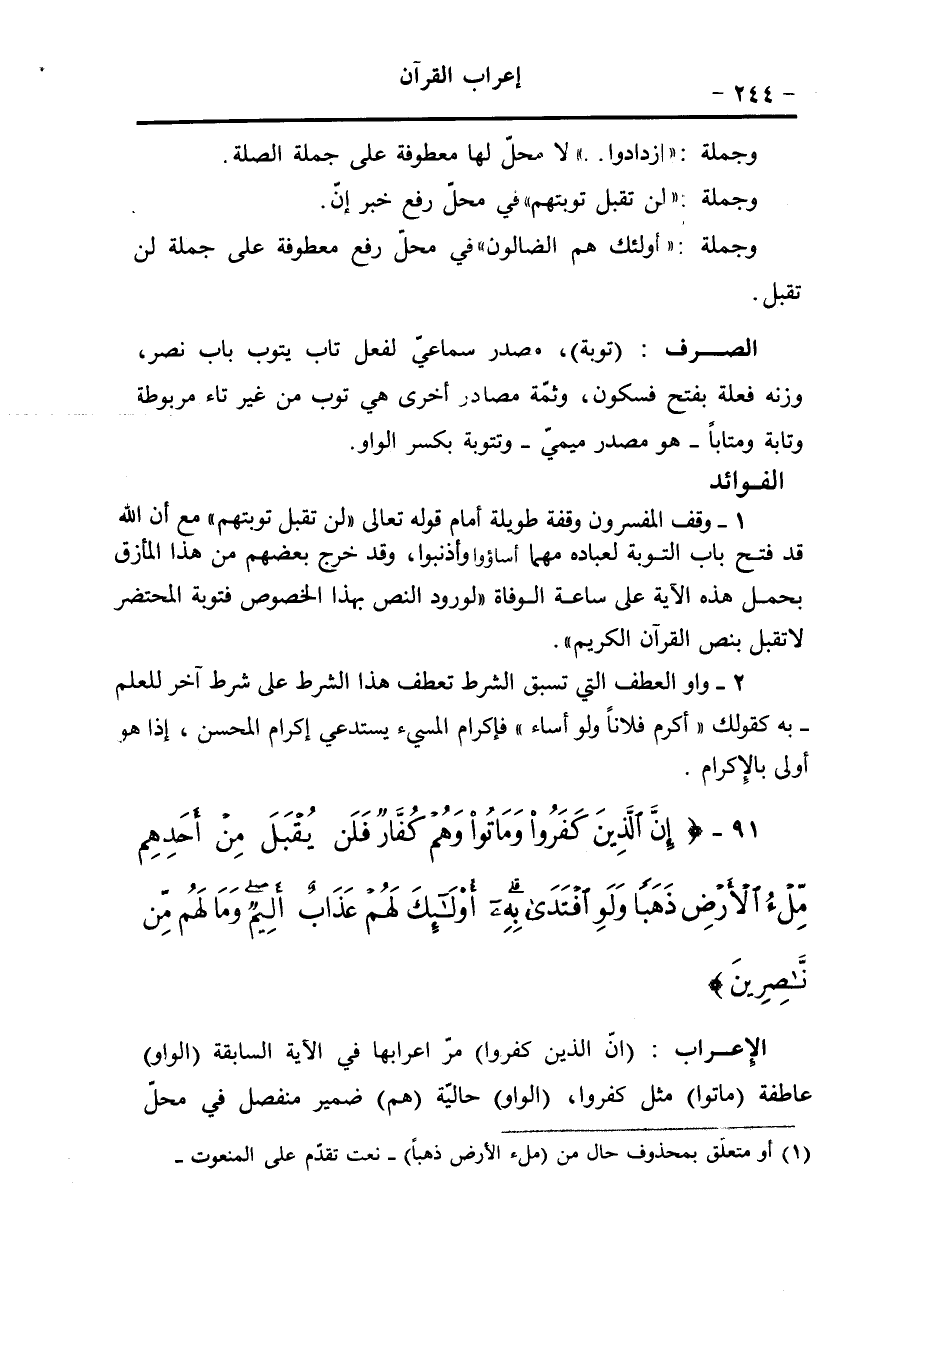 إعراب القرآن
- ٢٤٤ -
وجملة : « ازدادوا. .» لا محلّ لها معطوفة على جملة الصلة .
وجملة : « لن تقبل توبتهم» في محلّ رفع خبر إنّ .
وجملة : « أولئك هم الضالون» في محلّ رفع معطوفة على جملة لن
تقبل .
الصـــرف : (توبة)، مصدر سماعيّ لفعل تاب يتوب باب نصر،
وزنه فعلة بفتح فسكون، وثمّة مصادر أخرى هي توب من غير تاء مربوطة
وتابة ومتاباً ـ هو مصدر ميميّ ـ وتتوبة بكسر الواو.
الفـوائد
١ ـ وقف المفسرون وقفة طويلة أمام قوله تعالى «لن تقبل توبتهم» مع أن الله
قد فتـح باب التـوبة لعباده مهما أساؤوا وأذنبوا، وقد خرج بعضهم من هذا المأزق
بحمـل هذه الآية على ساعـة الـوفاة «لورود النص بهذا الخصوص فتوبة المحتضر
لاتقبل بنص القرآن الكريم» .
٢ ـ واو العطف التي تسبق الشرط تعطف هذا الشرط على شرط آخر للعلم
ـ به كقولك « أكرم فلاناً ولو أساء » فإكرام المسيء يستدعي إكرام المحسن ، إذا هو
أولى بالإكرام .
٩١ ـ ﴿ إِنَّ ٱلَّذِينَ كَفَرُواْ وَمَاتُواْ وَهُمْ كُفَّارٌ فَلَن يُقْبَلَ مِنْ أَحَدِهِم
مِّلْءُ ٱلْأَرْضِ ذَهَبًا وَلَوِ ٱفْتَدَىٰ بِهِۦٓ ۗ أُوْلَـٰٓئِكَ لَهُمْ عَذَابٌ أَلِيمٌ وَمَا لَهُم مِّن
نَّـٰصِرِينَ ﴾
الإعـــراب : (انّ الذين كفروا) مرّ اعرابها في الآية السابقة (الواو)
عاطفة (ماتوا) مثل كفروا، (الواو) حاليّة (هم) ضمير منفصل في محلّ
(١) أو متعلّق بمحذوف حال من (ملء الأرض ذهباً) ـ نعت تقدّم على المنعوت ـ